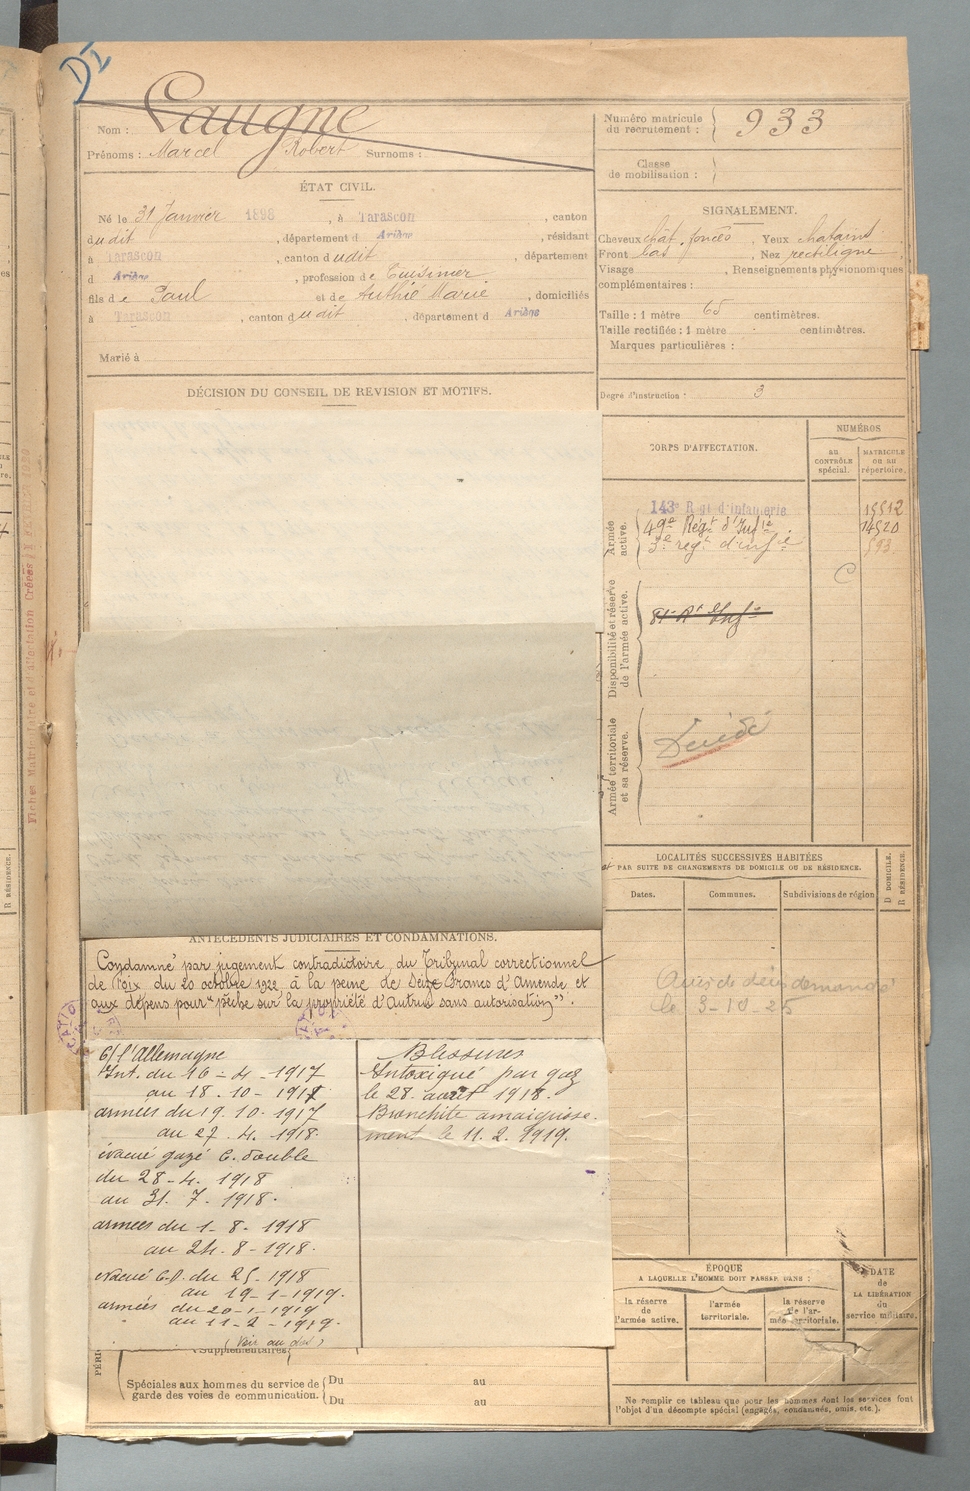 DI
Laugne
Nom :
Prénoms : Marcel Robert Surnoms :
Numéro matricule du recrutement : 933
Classe de mobilisation :
ÉTAT CIVIL.
Né le 31 Janvier 1898, à Tarascon, canton
dudit, département d Ariège, résidant
à Tarascon, canton dudit, département
d Ariège, profession de Cuisinier
fils de Paul et de Authié Marie, domiciliés
à Tarascon, canton dudit, département d Ariège
Marié à
SIGNALEMENT.
Cheveux chât. foncés, Yeux chatains
Front bas, Nez rectiligne.
Visage, Renseignements physionomiques
complémentaires :
Taille : 1 mètre 65 centimètres.
Taille rectifiée : 1 mètre centimètres.
Marques particulières :
Degré d'instruction : 3
DÉCISION DU CONSEIL DE REVISION ET MOTIFS.
CORPS D'AFFECTATION.
NUMÉROS
au CONTRÔLE spécial.
MATRICULE ou au répertoire.
Armée active.
143e Régt d'infanterie 15512
49e Régt d'Infie 14520
3e régt d'infie 593
C
Disponibilité et réserve de l'armée active.
Armée territoriale et sa réserve.
Décédé
LOCALITÉS SUCCESSIVES HABITÉES
PAR SUITE DE CHANGEMENTS DE DOMICILE OU DE RÉSIDENCE.
Dates.
Communes.
Subdivisions de région
D DOMICILE.
R RÉSIDENCE.
Avis de décès demandé
le 3-10-25
ANTÉCÉDENTS JUDICIAIRES ET CONDAMNATIONS.
Condamné par jugement contradictoire du Tribunal correctionnel
de Foix du 20 octobre 1922 à la peine de Seize Francs d'Amende et
aux dépens pour "pêche sur la propriété d'Autrui sans autorisation".
C/ l'Allemagne
Int. du 16-4-1917
au 18.10-1917
armées du 19.10-1917
au 27.4.1918.
évacué gazé C. double
du 28-4.1918
au 31.7.1918.
armées du 1-8-1918
au 24.8-1918.
évacué C.D. du 25-1918
au 19-1-1919.
armées du 20-1-1919
au 11-2-1919.
(Voir au dos)
Blessures
Intoxiqué par gaz
le 28 août 1918.
Bronchite amaigrisse-
ment le 11.2.1919.
Supplémentaires
Spéciales aux hommes du service de garde des voies de communication.
Du au
Du au
ÉPOQUE
A LAQUELLE L'HOMME DOIT PASSER DANS :
la réserve de l'armée active.
l'armée territoriale.
la réserve de l'armée territoriale.
DATE de LA LIBÉRATION du service militaire.
Ne remplir ce tableau que pour les hommes dont les services font
l'objet d'un décompte spécial (engagés, condamnés, omis, etc.).